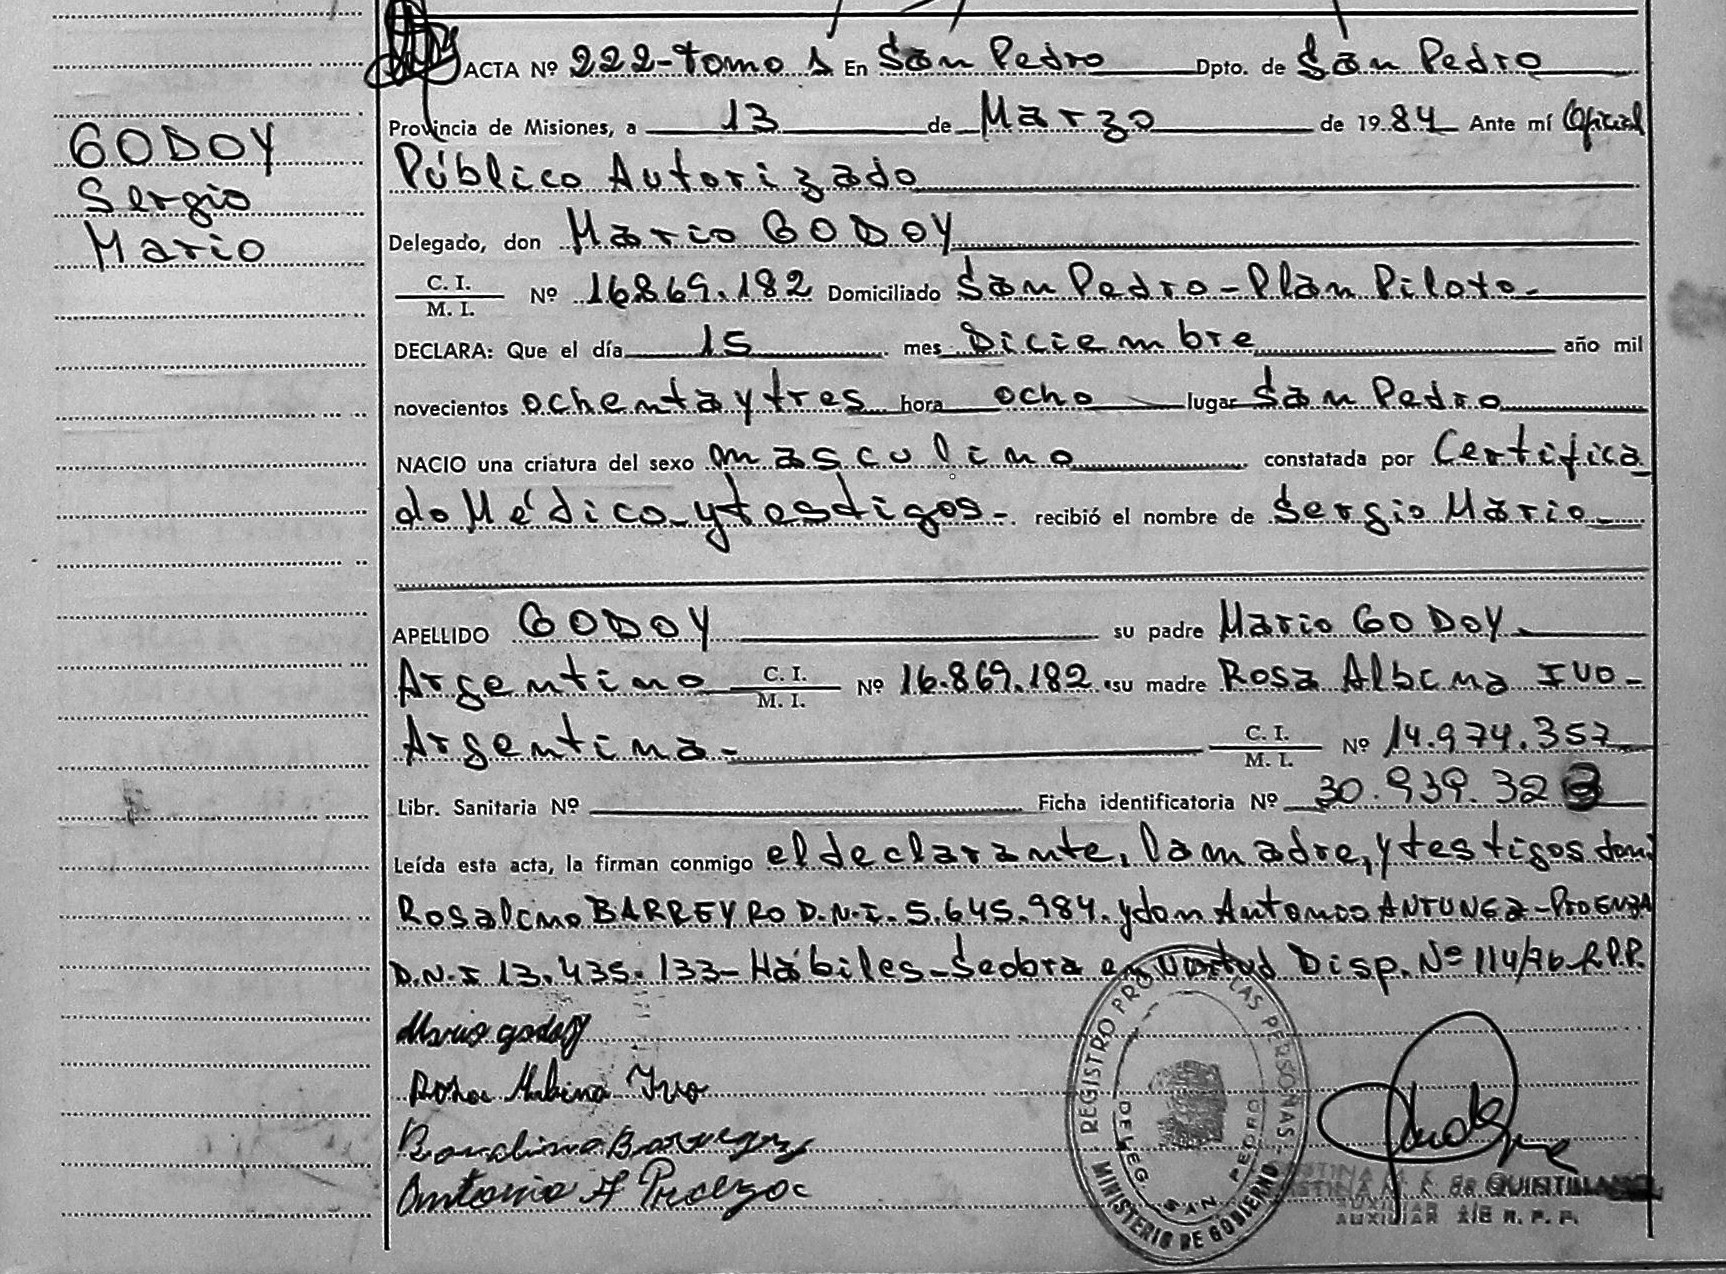 ACTA Nº 222-tomo 1 En San Pedro Dpto. de San Pedro
GODOY
Sergio
Mario
Provincia de Misiones, a 13 de Marzo de 1984 Ante mí Oficial
Público Autorizado
Delegado, don Mario GODOY
C. I. / M. I. Nº 16.869.182 Domiciliado San Pedro - Plan Piloto.
DECLARA: Que el día 15 mes Diciembre año mil
novecientos ochenta y tres hora ocho lugar San Pedro
NACIO una criatura del sexo masculino constatada por Certifica
do Médico y testigos-. recibió el nombre de Sergio Mario
APELLIDO GODOY su padre Mario GODOY.
Argentino C. I. / M. I. Nº 16.869.182. su madre Rosa Albina IVO-
Argentina- C. I. / M. I. Nº 14.974.357
Libr. Sanitaria Nº Ficha identificatoria Nº 30.939.32
Leída esta acta, la firman conmigo el declarante, la madre, y testigos don:
Rosalino BARREYRO D.N.I. 5.645.984. y don Antonio ANTUNEZ-PROENZA
D.N.I 13.435.133- Hábiles-Se obra en virtud Disp. Nº 114/76 R.P.P.
Mario godoy
Rosa Albina Ivo
Antonio A Proenza
REGISTRO PROV. DE LAS PERSONAS - MINISTERIO DE GOBIERNO
DELEG. SAN PEDRO
DE QUINTILLAN
AUXILIAR R. P. P.